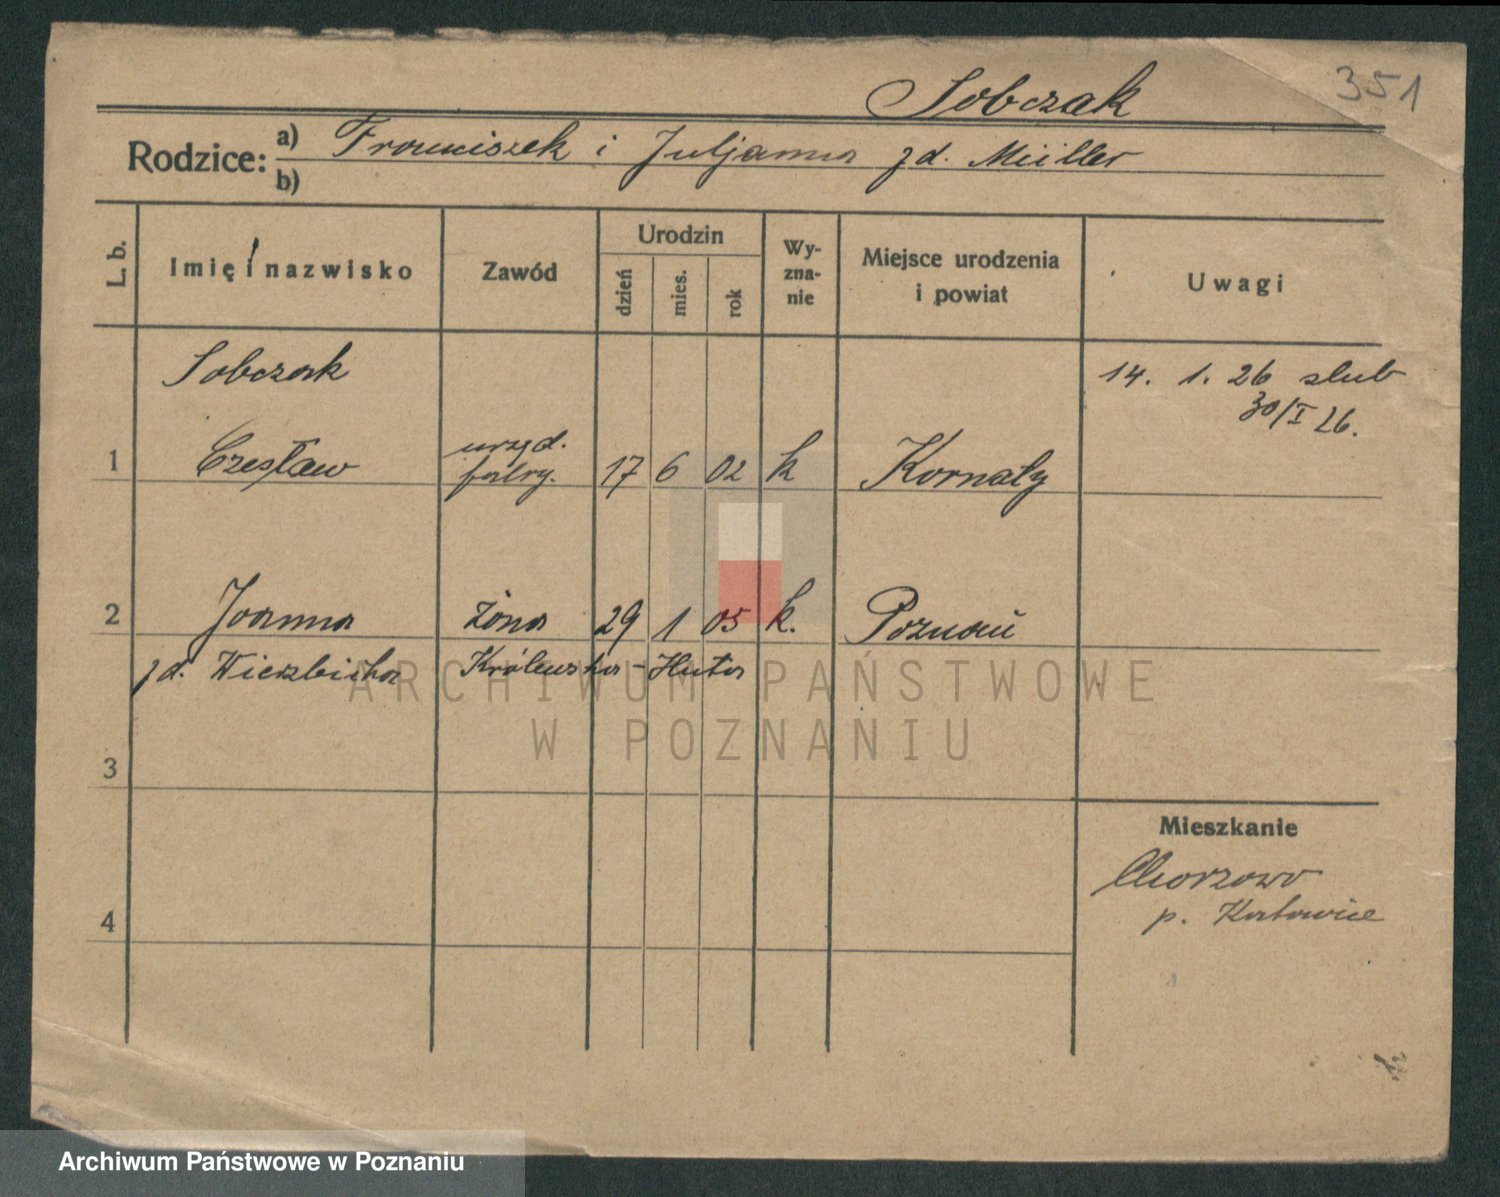 351
Sobczak
Rodzice: a) Franciszek i Juljanna zd. Müller
b)
L. b. Imię i nazwisko Zawód Urodzin dzień mies. rok Wy-zna-nie Miejsce urodzenia i powiat Uwagi
Sobczak 14. 1. 26 slub
30/I 26.
urzęd.
1 Czesław fabry. 17 6 02 k Kornaty
2 Joanna żona 29 1 05 k. Poznań
zd. Wierzbicka Królewska-Huta
ARCHIWUM PAŃSTWOWE
W POZNANIU
3
Mieszkanie
Chorzowo
4 p. Katowice
Archiwum Państwowe w Poznaniu